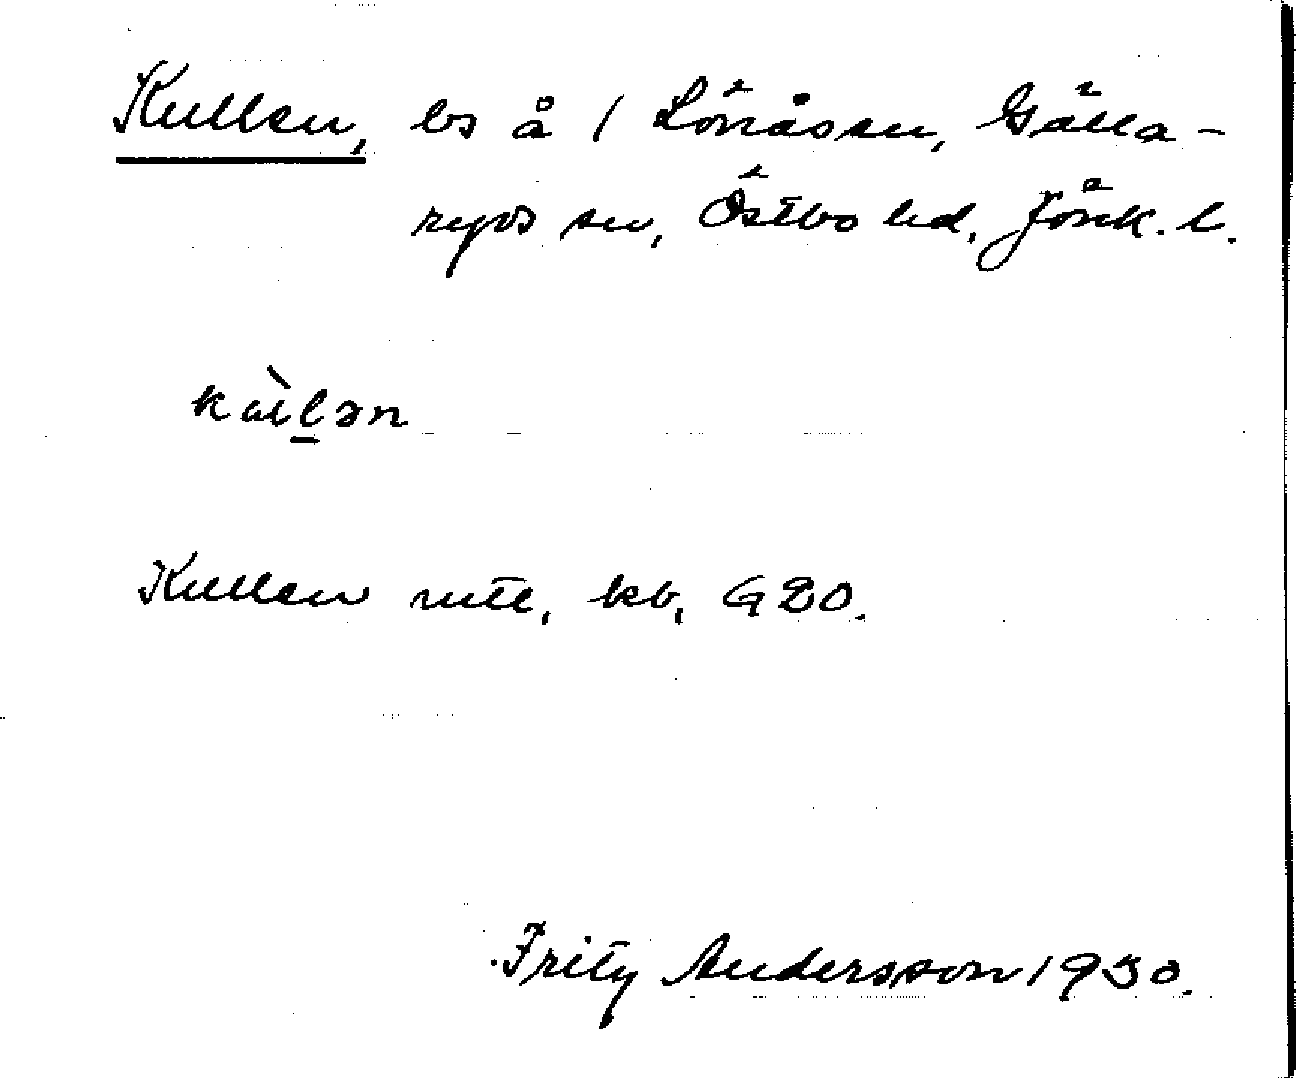 Kullen, bs å 1 Lönåsen, Gälla-
ryds sn, Östbo hd, Jönk. l.
Kullen mtl, kb, GEO.
Fritz Andersson 1930.